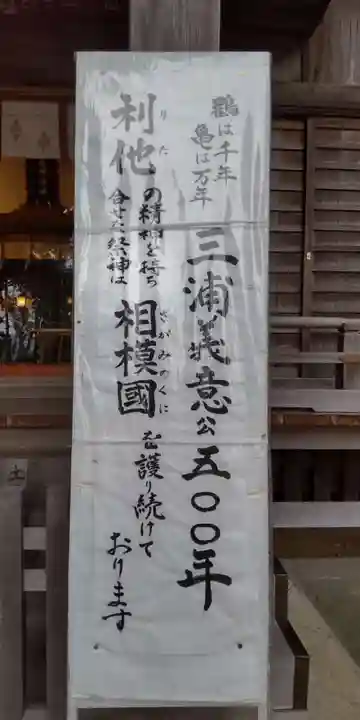 鶴は千年
亀は万年
三浦義意公五〇〇年
利他の精神を持ち
りた
合せた祭神は
相模國を護り続けて
さがみのくに
おります
土